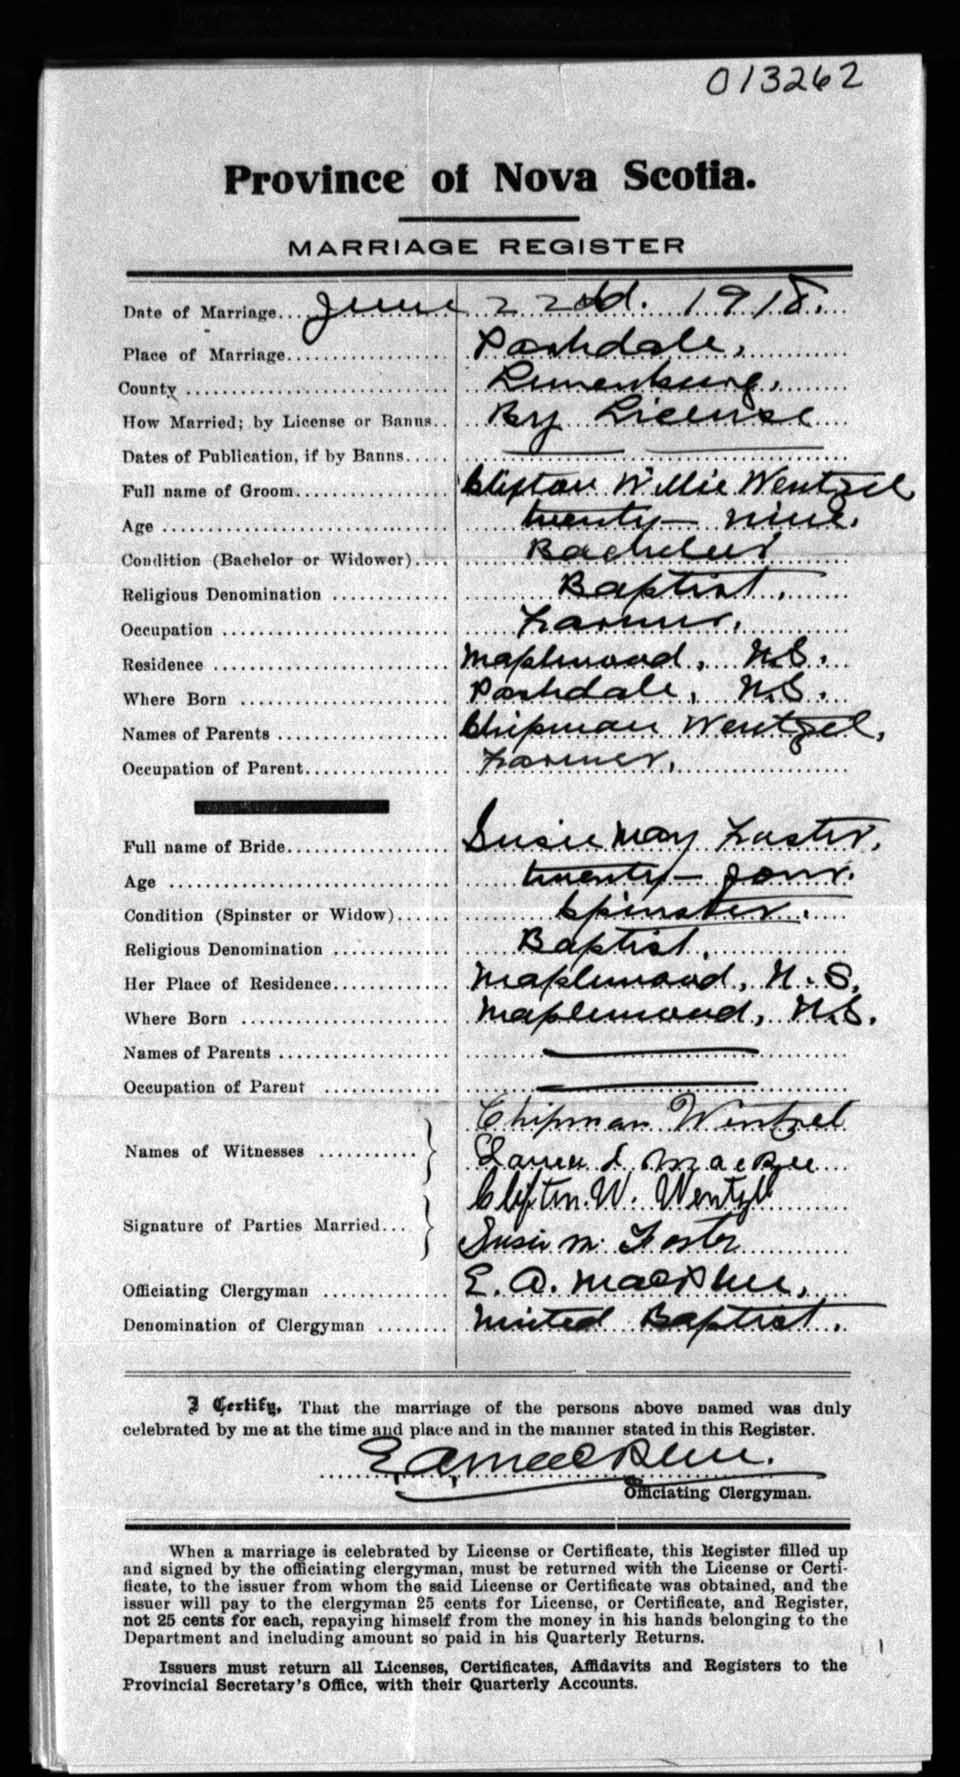 013262
Province of Nova Scotia.
MARRIAGE REGISTER
Date of Marriage... June 22nd. 1918.
Place of Marriage... Parkdale,
County ... Lunenburg,
How Married; by License or Banns.. By License
Dates of Publication, if by Banns.....
Full name of Groom... Clifton Willie Wentzel
Age ... twenty-nine.
Condition (Bachelor or Widower).... Bachelor
Religious Denomination ... Baptist.
Occupation ... Farmer.
Residence ... Maplewood, N.S.
Where Born ... Parkdale, N.S.
Names of Parents ... Chipman Wentzel,
Occupation of Parent... Farmer.
Full name of Bride... Susie May Foster,
Age ... twenty-four.
Condition (Spinster or Widow)...... Spinster.
Religious Denomination ... Baptist.
Her Place of Residence... Maplewood, N.S.
Where Born ... Maplewood, N.S.
Names of Parents ...
Occupation of Parent ...
Chipman Wentzel
Names of Witnesses ...
Clifton W. Wentzel
Signature of Parties Married...
Susie M. Foster
Officiating Clergyman ... E. A. MacPhee.
Denomination of Clergyman ... United Baptist.
I Certify, That the marriage of the persons above named was duly
celebrated by me at the time and place and in the manner stated in this Register.
E. A. MacPhee.
Officiating Clergyman.
When a marriage is celebrated by License or Certificate, this Register filled up
and signed by the officiating clergyman, must be returned with the License or Certi-
ficate, to the issuer from whom the said License or Certificate was obtained, and the
issuer will pay to the clergyman 25 cents for License, or Certificate, and Register,
not 25 cents for each, repaying himself from the money in his hands belonging to the
Department and including amount so paid in his Quarterly Returns.
Issuers must return all Licenses, Certificates, Affidavits and Registers to the
Provincial Secretary's Office, with their Quarterly Accounts.